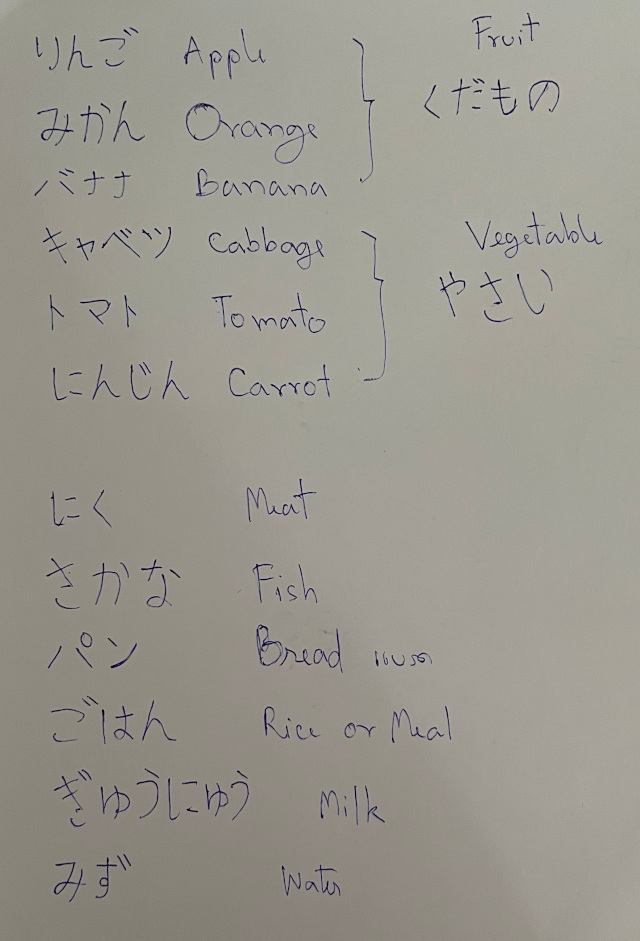 りんご Apple
みかん Orange
バナナ Banana
Fruit
くだもの
キャベツ Cabbage
トマト Tomato
にんじん Carrot
Vegetable
やさい
にく Meat
さかな Fish
パン Bread
ごはん Rice or Meal
ぎゅうにゅう Milk
みず Water